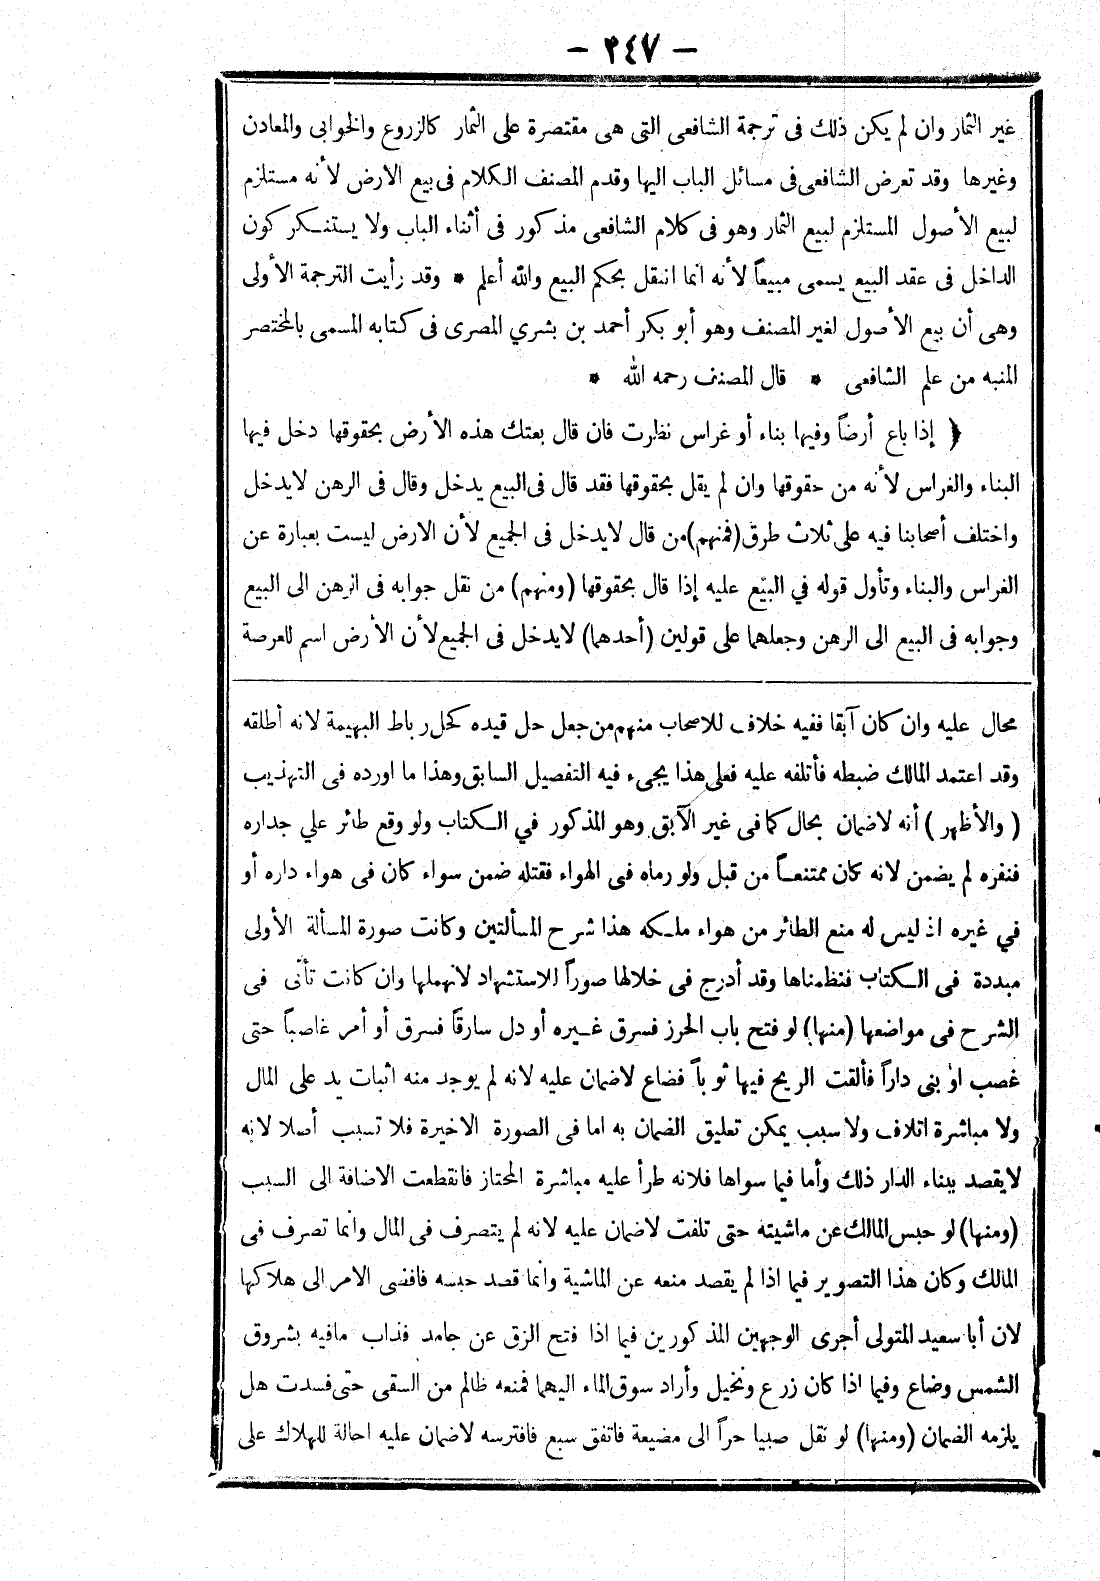 — ٢٤٧ —
غير الثمار وان لم يكن ذلك فى ترجمة الشافعى التى هى مقتصرة على الثمار كالزروع والخوابى والمعادن
وغيرها وقد تعرض الشافعى فى مسائل الباب اليها وقدم المصنف الكلام فى بيع الارض لأنه مستلزم
لبيع الأصول المستلزم لبيع الثمار وهو فى كلام الشافعى مذكور فى أثناء الباب ولا يستنكر كون
الداخل فى عقد البيع يسمى مبيعاً لأنه انما انتقل بحكم البيع والله أعلم * وقد رأيت الترجمة الأولى
وهى أن بيع الأصول لغير المصنف وهو أبو بكر أحمد بن بشري المصرى فى كتابه المسمى بالمختصر
المنبه من علم الشافعى * قال المصنف رحمه الله *
﴿ إذا باع أرضاً وفيها بناء أو غراس نظرت فان قال بعتك هذه الأرض بحقوقها دخل فيها
البناء والغراس لأنه من حقوقها وان لم يقل بحقوقها فقد قال فى البيع يدخل وقال فى الرهن لايدخل
واختلف أصحابنا فيه على ثلاث طرق (فمنهم) من قال لايدخل فى الجميع لأن الارض ليست بعبارة عن
الغراس والبناء وتأول قوله في البيّع عليه إذا قال بحقوقها (ومنهم) من نقل جوابه فى الرهن الى البيع
وجوابه فى البيع الى الرهن وجعلهما على قولين (أحدهما) لايدخل فى الجميع لأن الأرض اسم للعرصة
محال عليه وان كان آبقا ففيه خلاف للاصحاب منهم من جعل حل قيده كحل رباط البهيمة لانه أطلقه
وقد اعتمد المالك ضبطه فأتلفه عليه فعلى هذا يجىء فيه التفصيل السابق وهذا ما اورده فى التهذيب
( والأظهر ) أنه لاضمان بحال كما فى غير الآبق وهو المذكور في الكتاب ولو وقع طائر علي جداره
فنفره لم يضمن لانه كان ممتنعاً من قبل ولو رماه فى الهواء فقتله ضمن سواء كان فى هواء داره أو
في غيره اذ ليس له منع الطائر من هواء ملكه هذا شرح المسألتين وكانت صورة المسألة الأولى
مبددة فى الكتاب فنظمناها وقد أدرج فى خلالها صوراً للاستشهاد لانهملها وان كانت تأتى فى
الشرح فى مواضعها (منها) لو فتح باب الحرز فسرق غيره أو دل سارقاً فسرق أو أمر غاصباً حتى
غصب او بنى داراً فألقت الريح فيها ثوباً فضاع لاضمان عليه لانه لم يوجد منه اثبات يد على المال
ولا مباشرة اتلاف ولا سبب يمكن تعليق الضمان به اما فى الصورة الاخيرة فلا تسبب أصلا لانه
لايقصد ببناء الدار ذلك وأما فيما سواها فلانه طرأ عليه مباشرة المختار فانقطعت الاضافة الى السبب
(ومنها) لو حبس المالك عن ماشيته حتى تلفت لاضمان عليه لانه لم يتصرف فى المال وانما تصرف فى
المالك وكان هذا التصوير فيما اذا لم يقصد منعه عن الماشية وانما قصد حبسه فافضى الامر الى هلاكها
لان أبا سعيد المتولى أجرى الوجهين المذكورين فيما اذا فتح الزق عن جامد فذاب مافيه بشروق
الشمس وضاع وفيما اذا كان زرع ونخيل وأراد سوق الماء اليهما فمنعه ظالم من السقى حتى فسدت هل
يلزمه الضمان (ومنها) لو نقل صبيا حراً الى مضيعة فاتفق سبع فافترسه لاضمان عليه احالة للهلاك على